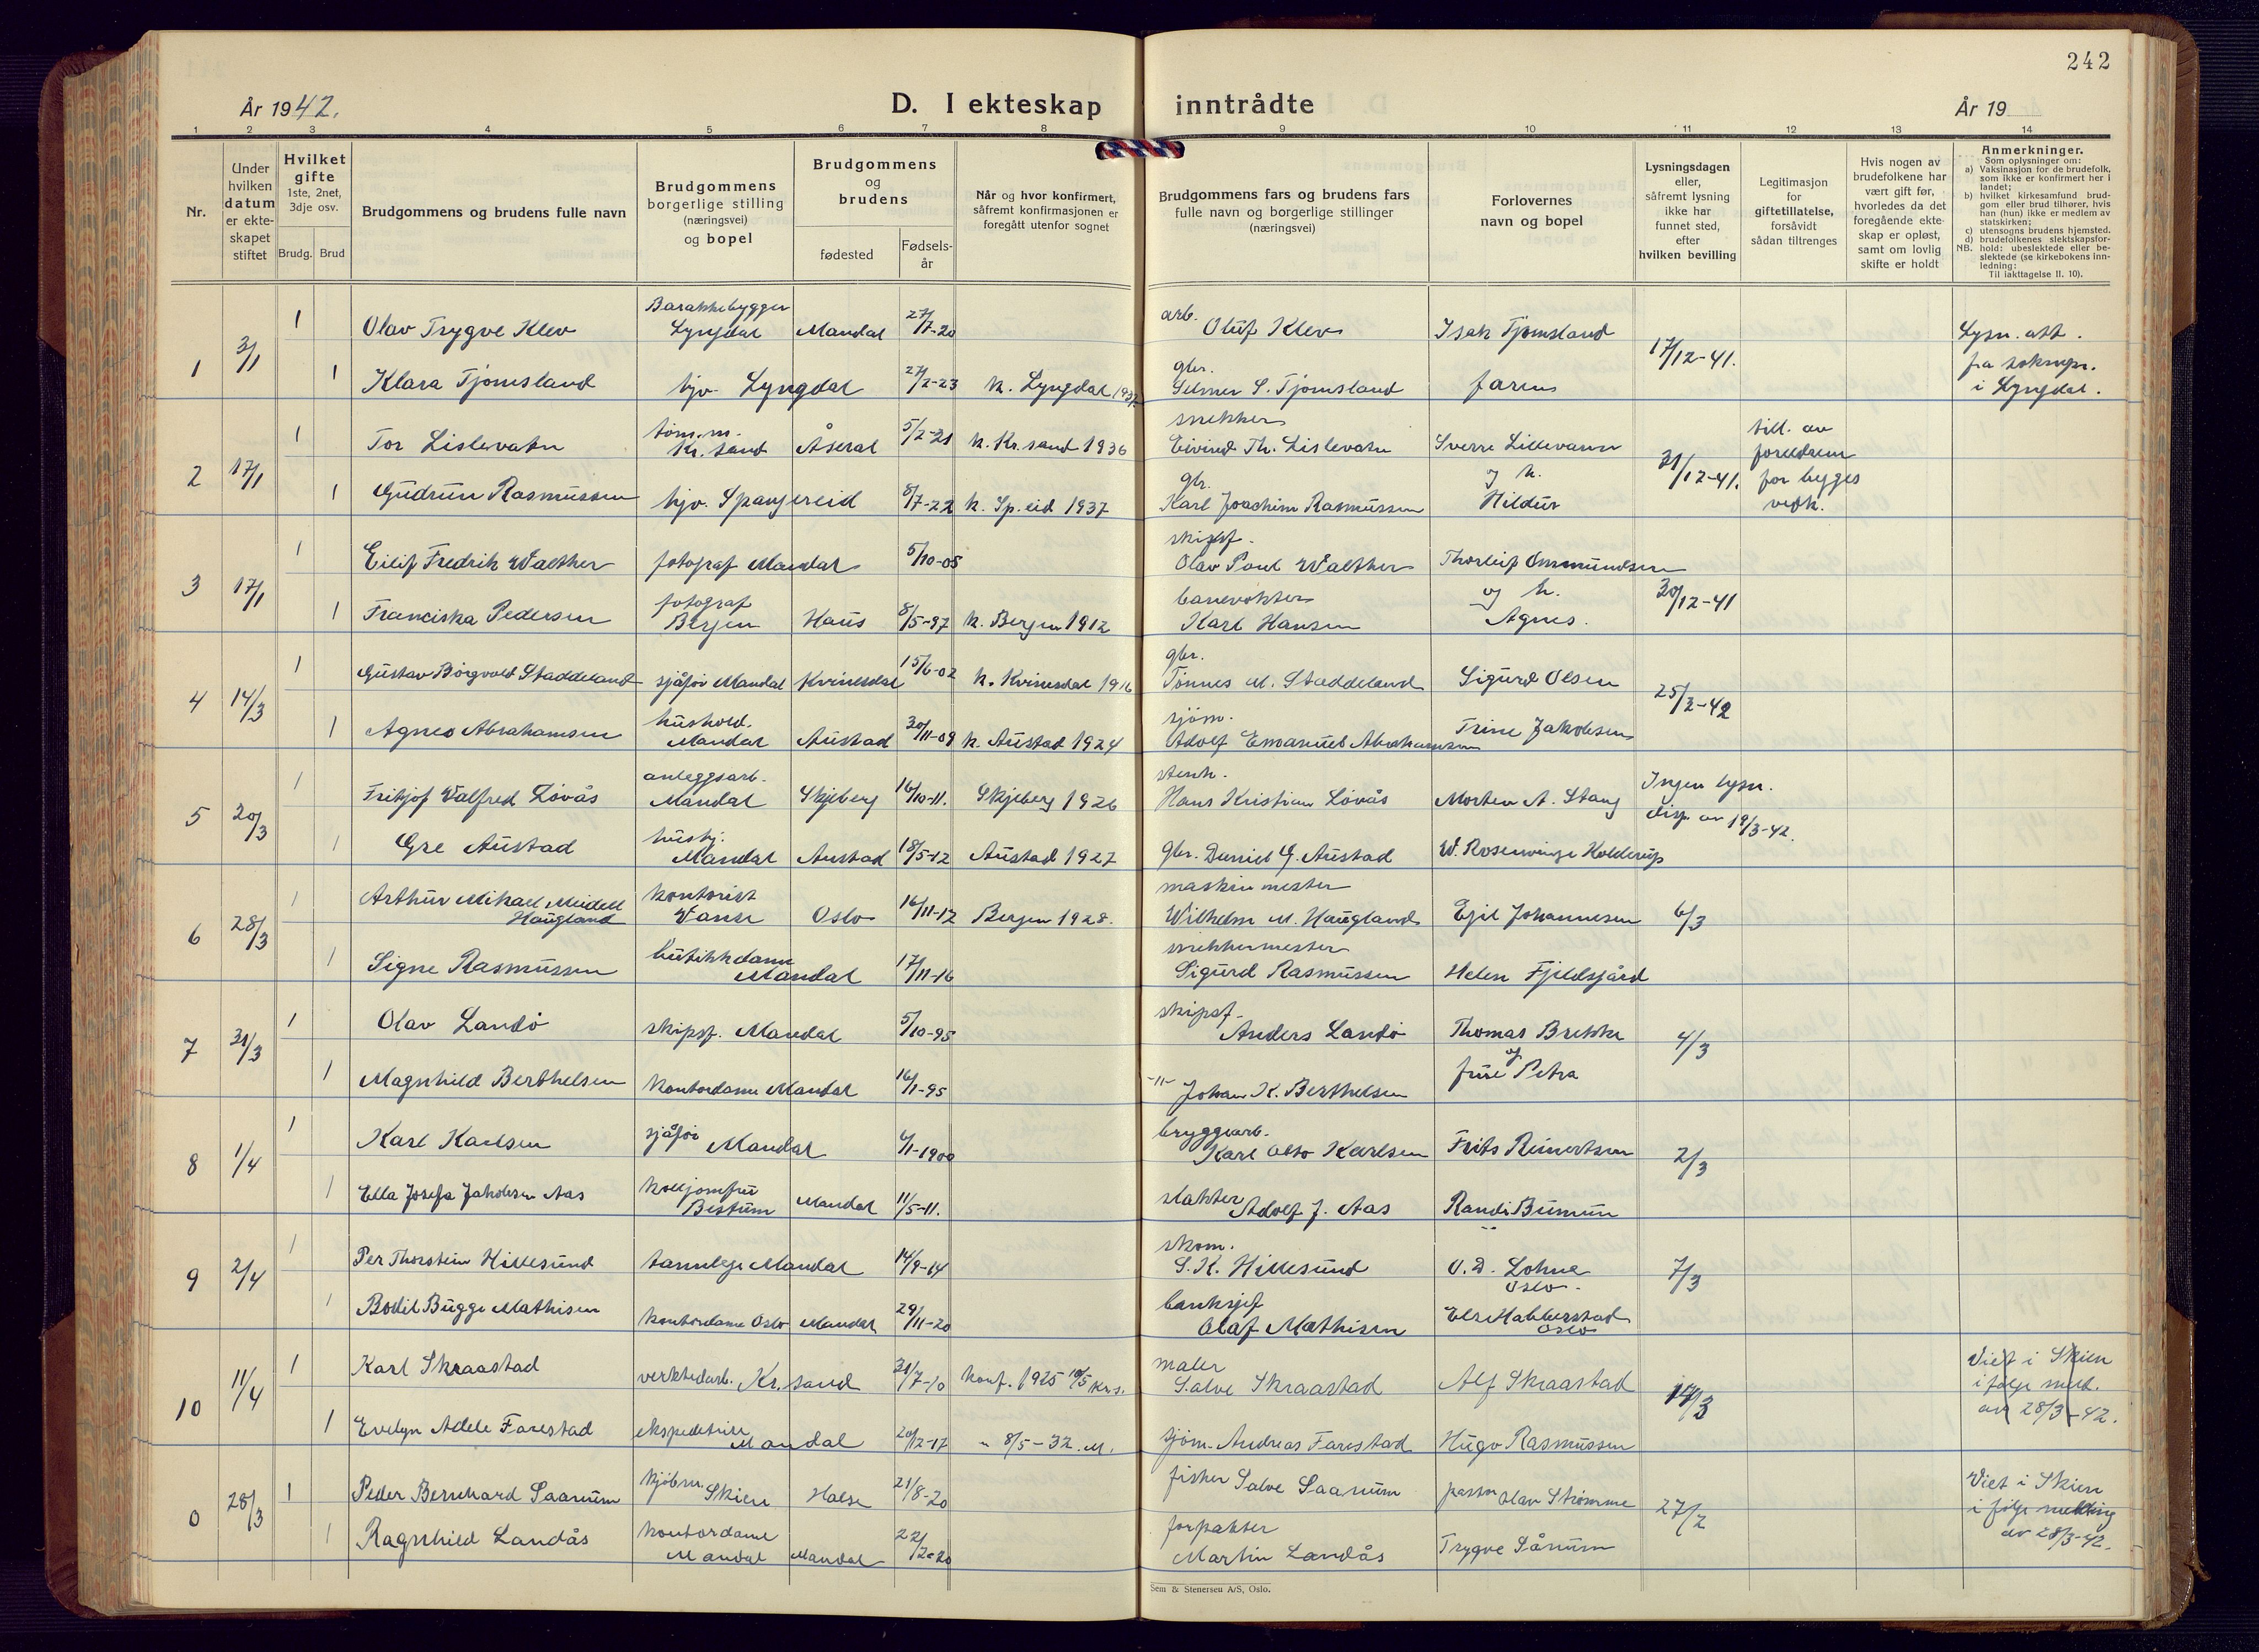 242
År 1942.
D. I ekteskap inntrådte
År 19
1 2 3 4 5 6 7 8 9 10 11 12 13 14
Nr.
Under
hvilken
datum
er ekte-
skapet
stiftet
Hvilket
gifte
1ste, 2net,
3dje osv.
Brudg. Brud
Brudgommens og brudens fulle navn
Brudgommens
borgerlige stilling
(næringsvei)
og bopel
Brudgommens
og
brudens
fødested
Fødsels-
år
Når og hvor konfirmert,
såfremt konfirmasjonen er
foregått utenfor sognet
Brudgommens fars og brudens fars
fulle navn og borgerlige stillinger
(næringsvei)
Forlovernes
navn og bopel
Lysningsdagen
eller,
såfremt lysning
ikke har
funnet sted,
efter
hvilken bevilling
Legitimasjon
for
giftetillatelse,
forsåvidt
sådan tiltrenges
Hvis nogen av
brudefolkene har
vært gift før,
hvorledes da det
foregående ekte-
skap er opløst,
samt om lovlig
skifte er holdt
Anmerkninger.
Som oplysninger om:
a) Vaksinasjon for de brudefolk,
som ikke er konfirmert her i
landet;
b) hvilket kirkesamfund brud-
gom eller brud tilhører, hvis
han (hun) ikke er medlem av
statskirken;
c) utensogns brudens hjemsted.
d) brudefolkenes slektskapsfor-
NB. hold: ubeslektede eller be-
slektede (se kirkebokens inn-
ledning:
Til iakttagelse II. 10).
1 3/1
1 Olav Trygve Klev Barakkebygger Lyngdal Mandal 27/7-20 arb. Oluf Klev Isak Tjomsland 17/12-41. Lysn. att.
fra soknepr.
i Lyngdal.
1 Klara Tjomsland hjv. Lyngdal 27/2-23 k. Lyngdal 1937 gbr. Selmer S. Tjomsland faren
2 17/1
1 Tor Lislevatn tøm.m. Kr.sand Åseral 5/2-21 k. Kr.sand 1936 snekker Eivind Th. Lislevatn Sverre Lillevann og h. 31/12-41. till. av
foreldrene
for begges
vedk.
1 Gudrun Rasmussen hjv. Spangereid 8/7-22 k. Sp.eid 1937 gbr. Karl Joachim Rasmussen Hildur
3 17/1
1 Eilif Fredrik Walther fotograf Mandal 5/10-05 skipsf. Olav Poul Walther Thorleif Ommundsen og h. 30/12-41
1 Franciska Pedersen fotograf Bergen Haus 8/5-97 k. Bergen 1912 banevokter Karl Hansen Agnes.
4 14/3
1 Gustav Borgvold Staddeland sjåfør Mandal Kvinesdal 15/6-02 k. Kvinesdal 1916 gbr. Tønnes M. Staddeland Sigurd Olsen 25/2-42
1 Agnes Abrahamsen hushold. Mandal Austad 30/11-09 k. Austad 1924 sjøm. Adolf Emanuel Abrahamsen Trine Jakobsen
5 20/3
1 Fritjof Valfred Løvås anleggsarb. Mandal Skjeberg 16/10-11. Skjeberg 1926 stenh. Hans Kristian Løvås Morten A. Stang Ingen lysn.
disp. av 19/3-42.
1 Gre Austad hushj. Mandal Austad 18/5-12 Austad 1927 gbr. Daniel G. Austad W. Rosenvinge Kolderup
6 28/3
1 Arthur Mikael Meidell Haugland kontorist Vanse Oslo 16/11-12 Bergen 1928. maskinmester Wilhelm M. Haugland Egil Johannesen 6/3
1 Signe Rasmussen butikkdame Mandal 17/11-16 snekkermester Sigurd Rasmussen Helen Fjeldsgård
7 31/3
1 Olav Landø skipsf. Mandal 5/10-95 skipsf. Anders Landø Thomas Brekke og 4/3
1 Magnhild Berthelsen kontordame Mandal 16/1-95 -"- Johan K. Berthelsen frue Petra
8 1/4
1 Karl Karlsen sjåfør Mandal 6/1-1900 bryggearb. Karl Otto Karlsen Frits Reinertsen 2/3
1 Ella Josefa Jakobsen Aas Bestum Mandal 11/5-11. slakter Adolf J. Aas Randi
9 2/4
1 Per Thorstein Hillesund tannlege Mandal 14/9-14 skom. S. K. Hillesund O. D. Lohne Oslo. 7/3
1 Bodil Bugge Mathisen kontordame Oslo Mandal 29/11-20 banksjef Olaf Mathisen Else Habberstad Oslo
10 11/4
1 Karl Skraastad verkstedarb. Kr.sand 31/7-10 konf. 1925 10/5 Kr.s. maler Salve Skraastad Alf Skraastad 14/3 Viet i Skien
i følge meld.
av 28/3-42.
1 Evelyn Adele Farestad ekspeditrise Mandal 20/12-17 " 8/5-32. M. sjøm. Andreas Farestad Hugo Rasmussen
0 28/3
1 Peder Bernhard Saanum kjøbm. Skien Halse 21/8-20 fisker Salve Saanum pastor Olav Strømme 27/2 Viet i Skien
i følge melding
av 28/3-42.
1 Ragnhild Landås kontordame Mandal Mandal 22/2-20 forpakter Martin Landås Trygve Sånum
Sem & Stenersen A/S, Oslo.